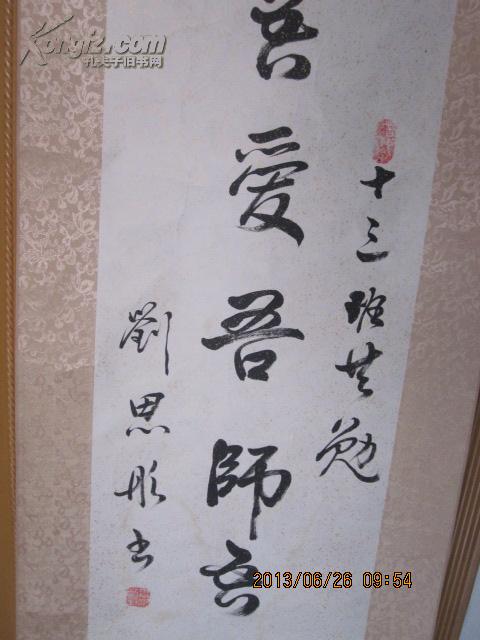 Kongfz.com
孔夫子旧书网
十三班共勉
吾愛吾師吾
劉思彤書
2013/06/26 09:54